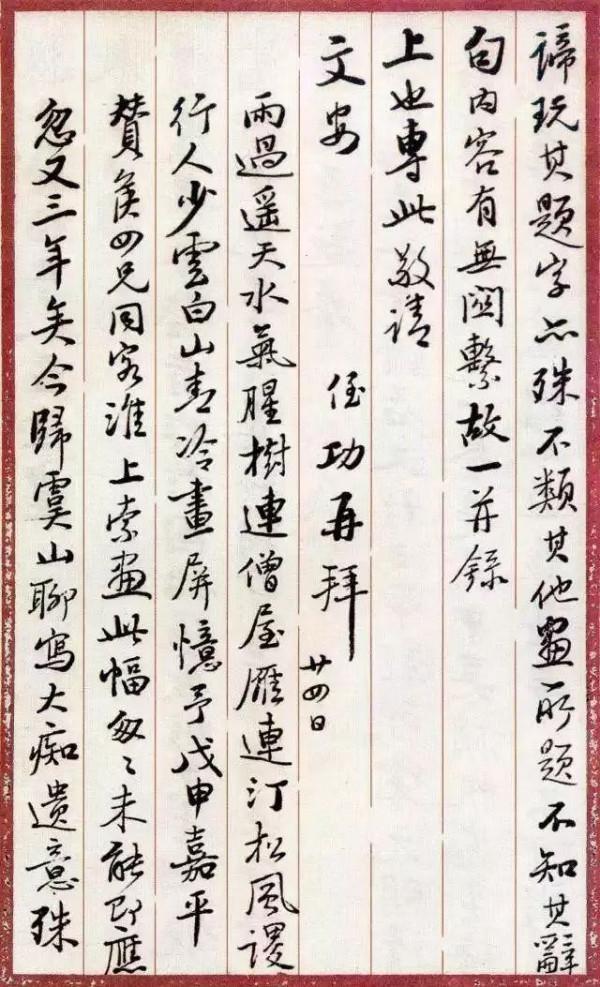 諦玩其題字亦殊不類其他畫所題不知其辭
句內容有無關繫故一并錄
上也專此敬請
文安
侄功再拜
廿四日
雨過遥天水氣腥樹連僧屋雁連汀松風謖
行人少雲白山青冷畫屏憶予戊申嘉平
贊侯四兄同客淮上索畫此幅匆匆未能即應
忽又三年矣今歸虞山聊寫大痴遺意殊